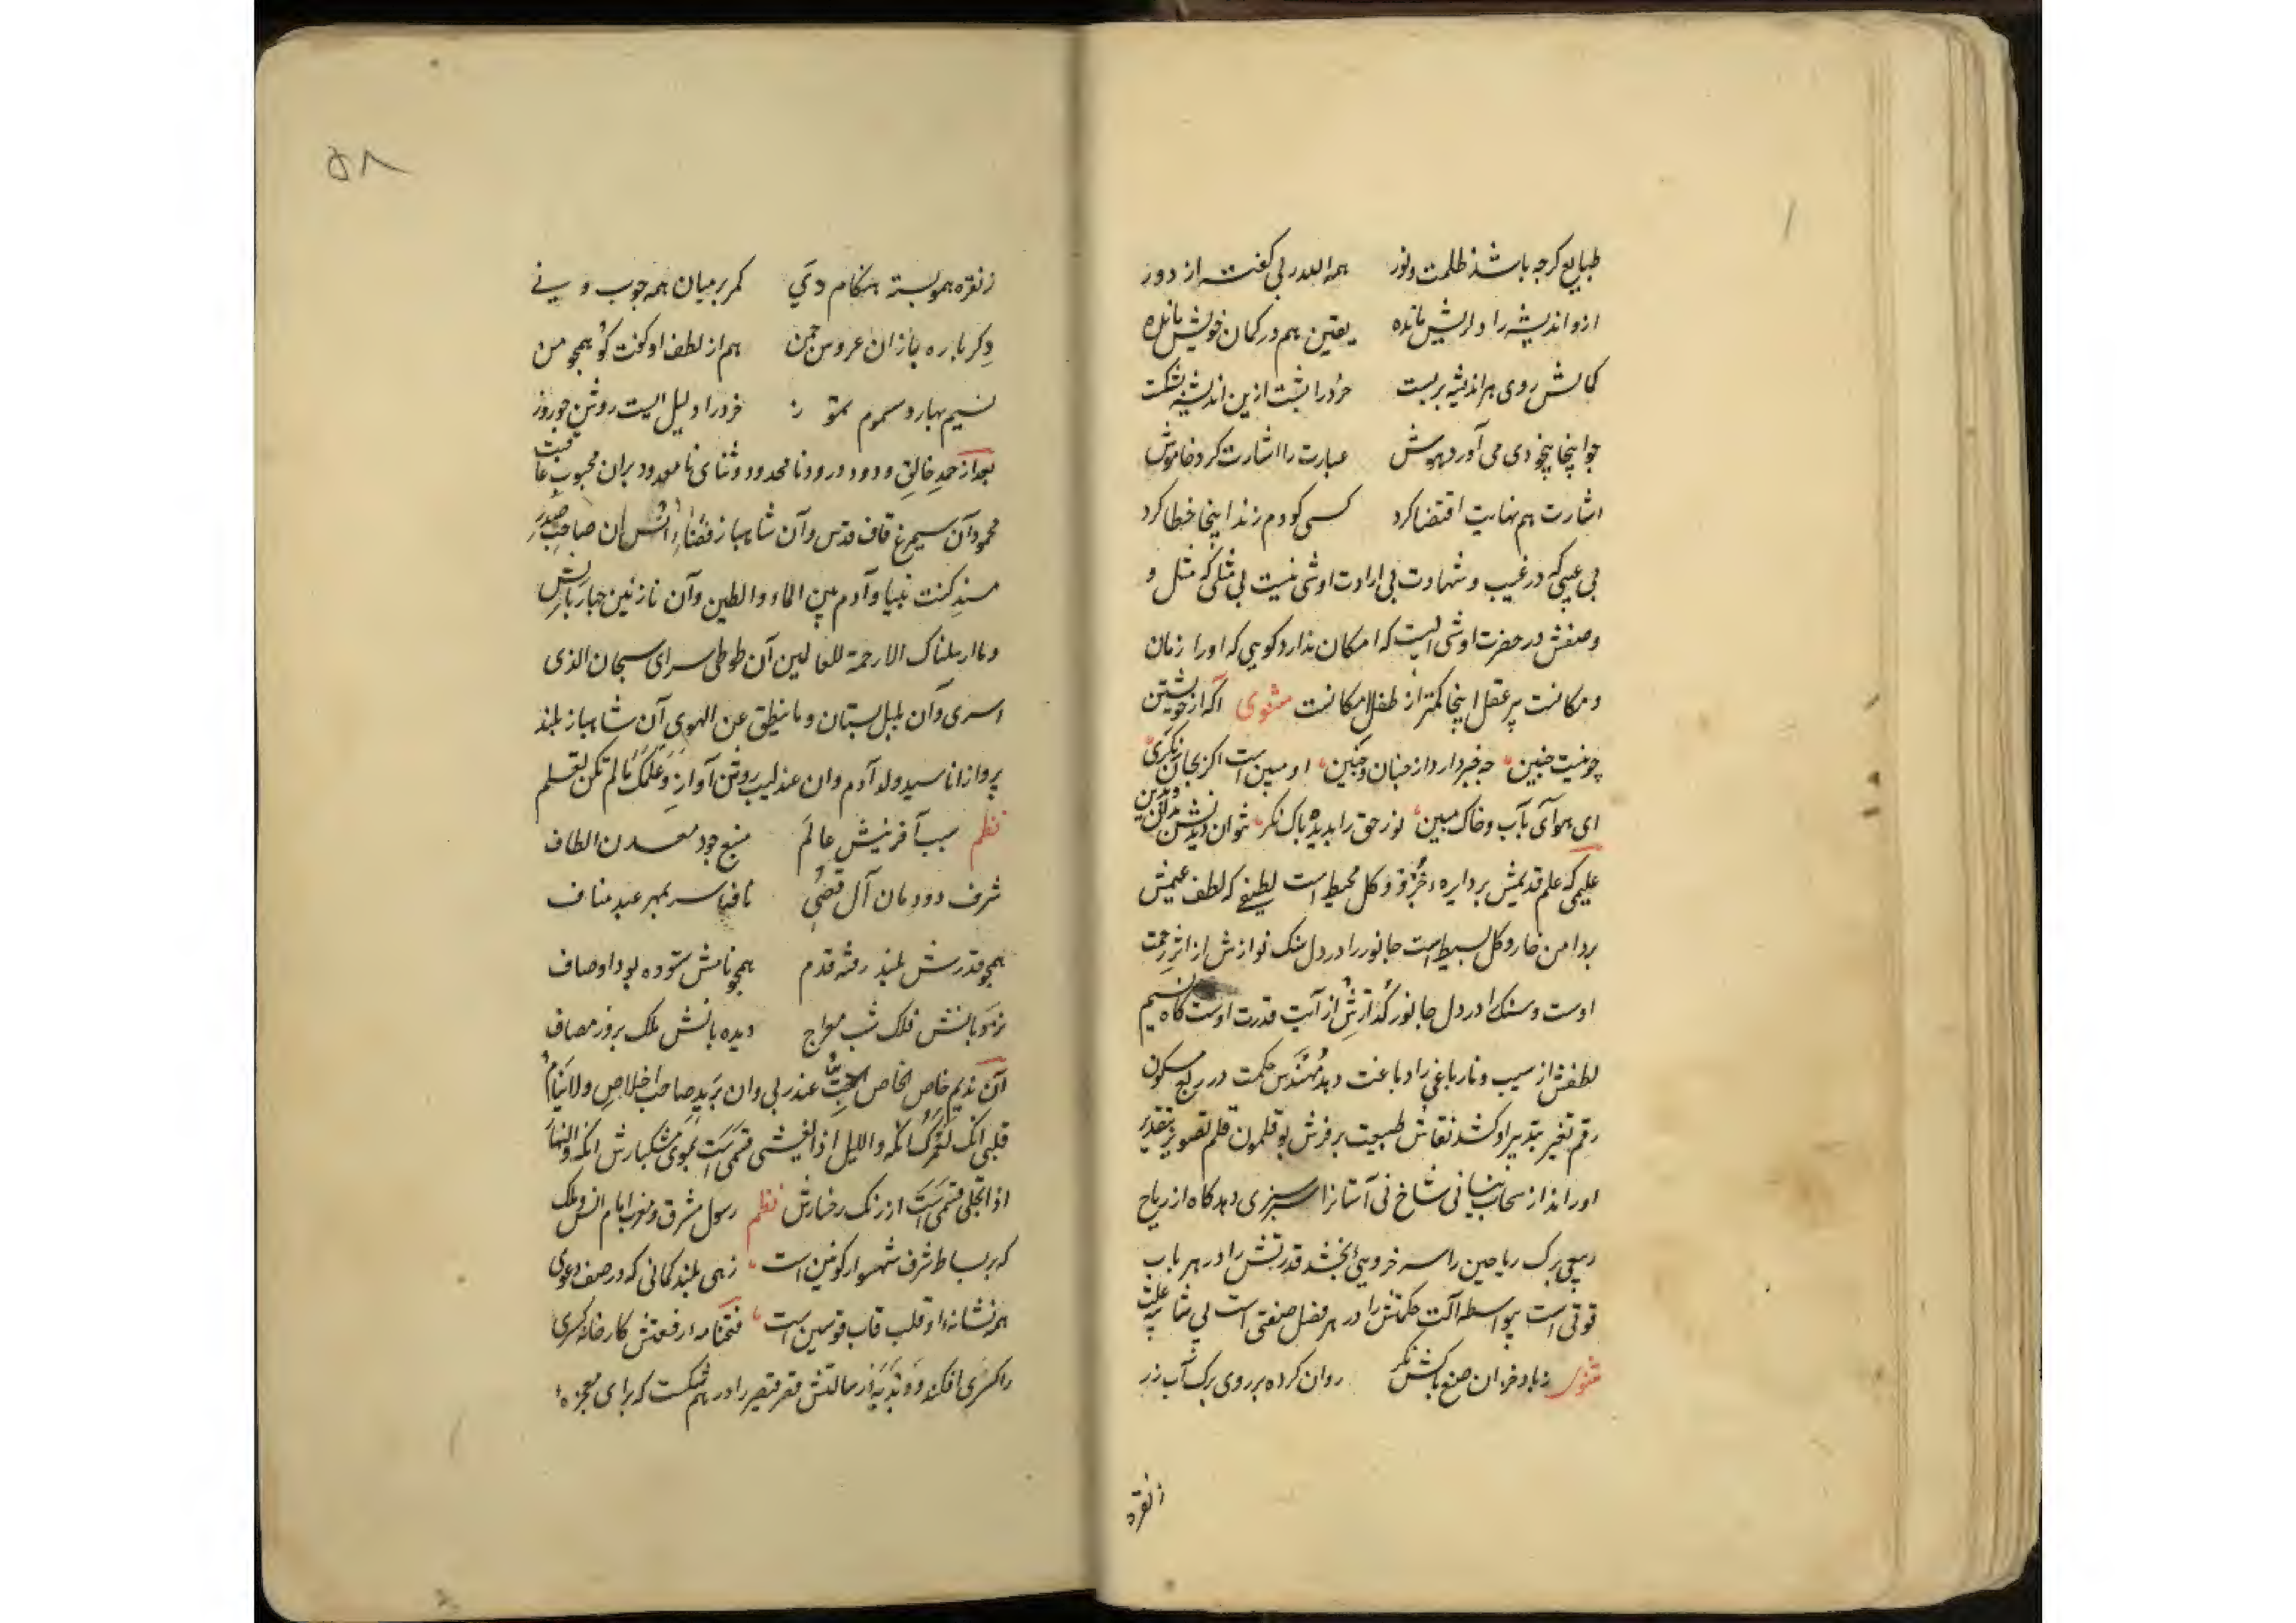 طبایع کرچه باشد ظلمت و نور همه الله ربی کفت از دور
ازو اندیشه را دل ریش مانده یقین هم در کمان خویش مانده
کمالش روی هر اندیشه بربست خرد را پشت ازین اندیشه بشکست
چو اینجا بیخودی می آورد هوش عبارت را اشارت کرد خاموش
اشارت هم نهایت اقتضا کرد کسی کو دم زند اینجا خطا کرد
بی عیبی که در غیب و شهادت بی ارادت او شی نیست بی مثلی که مثل و
وصفش در حضرت او شی است که امکان ندارد کویی که او را زمان
و مکانست پیر عقل اینجا کمتر از طفل امکانست مثنوی آکه از خویشتن
چو نیست جنین چه خبر دارد از جنان و جنین او مبین است اکر بجان نکری
ای هوای بآب و خاک مبین نور حق را بدیده پاک نکر نتوان دیدنش
علیمی که علم قدیمش بر دایره جزو و کل محیط است لطیفی که لطف عمیمش
بر دامن خار و کل بسیط است جانور را در دل سنک نوازش از اثر رحمت
اوست و سنک را در دل جانور کدازش از آیت قدرت اوست کاه نسیم
لطفش از سیب و نار باغی را دباغت دهد مهندس حکمت در ربع مسکون
رقم تغیر بتدبیر او کشد نقاش طبیعت بر فرش بوقلمون قلم تصویر بتقدیر
او راند از سحاب نیسانی شاخ نی آسا را سرسبزی دهد کاه از ریاح
ربیعی برک ریاحین را سرخ رویی بخشد قدرتش را در هر باب
قوتی است بیواسطه آلت حکمتش را در هر فصل صنعتی است بی شایبه علت
مثنوی ز باد خزان صنع پاکش نکر روان کرده بر روی برک آب زر
زنقره
۵۸
ز نقره همو بسته هنکام دی کمر بر میان همه چوب و نی
دکرباره باز ان عروس چمن هم از لطف او کفت کو همچو من
نسیم بهار و سموم تموز خرد را دلیل است روشن چو روز
بعد از حمد خالق ودود درود نامحدود و ثنای نامعدود بران محبوب عاقبت
محمود آن سیمرغ قاف قدس و آن شاهباز فضاء انس ان صاحب صدر
مسند کنت نبیا و آدم بین الماء والطین و آن نازنین جهار بالش
و ما ارسلناک الا رحمة للعالمین آن طوطی سرای سبحان الذی
اسری و آن بلبل بستان و ما ینطق عن الهوی آن شاهباز بلند
پرواز انا سید ولد آدم وان عندلیب روشن آواز و علمک ما لم تکن تعلم
نظم سبب آفرینش عالم منبع جود معدن الطاف
شرف دودمان آل قصی تافته سر بمهر عبد مناف
همچو قدرش بلند رفته قدم همچو نامش ستوده بود اوصاف
نردبانش فلک شب معراج دیده بانش ملک بروز مصاف
آن ندیم خاص الخاص ابیت عند ربی وان برید صاحب اخلاص ولا ینام
قلبی انک لعمرک انکه واللیل اذا یغشی قسمی است بموی مشکبارش انکه والنهار
اذا تجلی قسمی است از رنک رخسارش نظم رسول مشرق و مغرب امام انس و ملک
که بر بساط شرف شهسوار کونین است زهی بلند کمانی که در صف دعوی
همه نشانه او قلب قاب قوسین است فتحنامه رفعتش کارخانه کسری
را کسری افکند و دبدبه رسالتش قصر قیصر را در هم شکست که برای معجزه